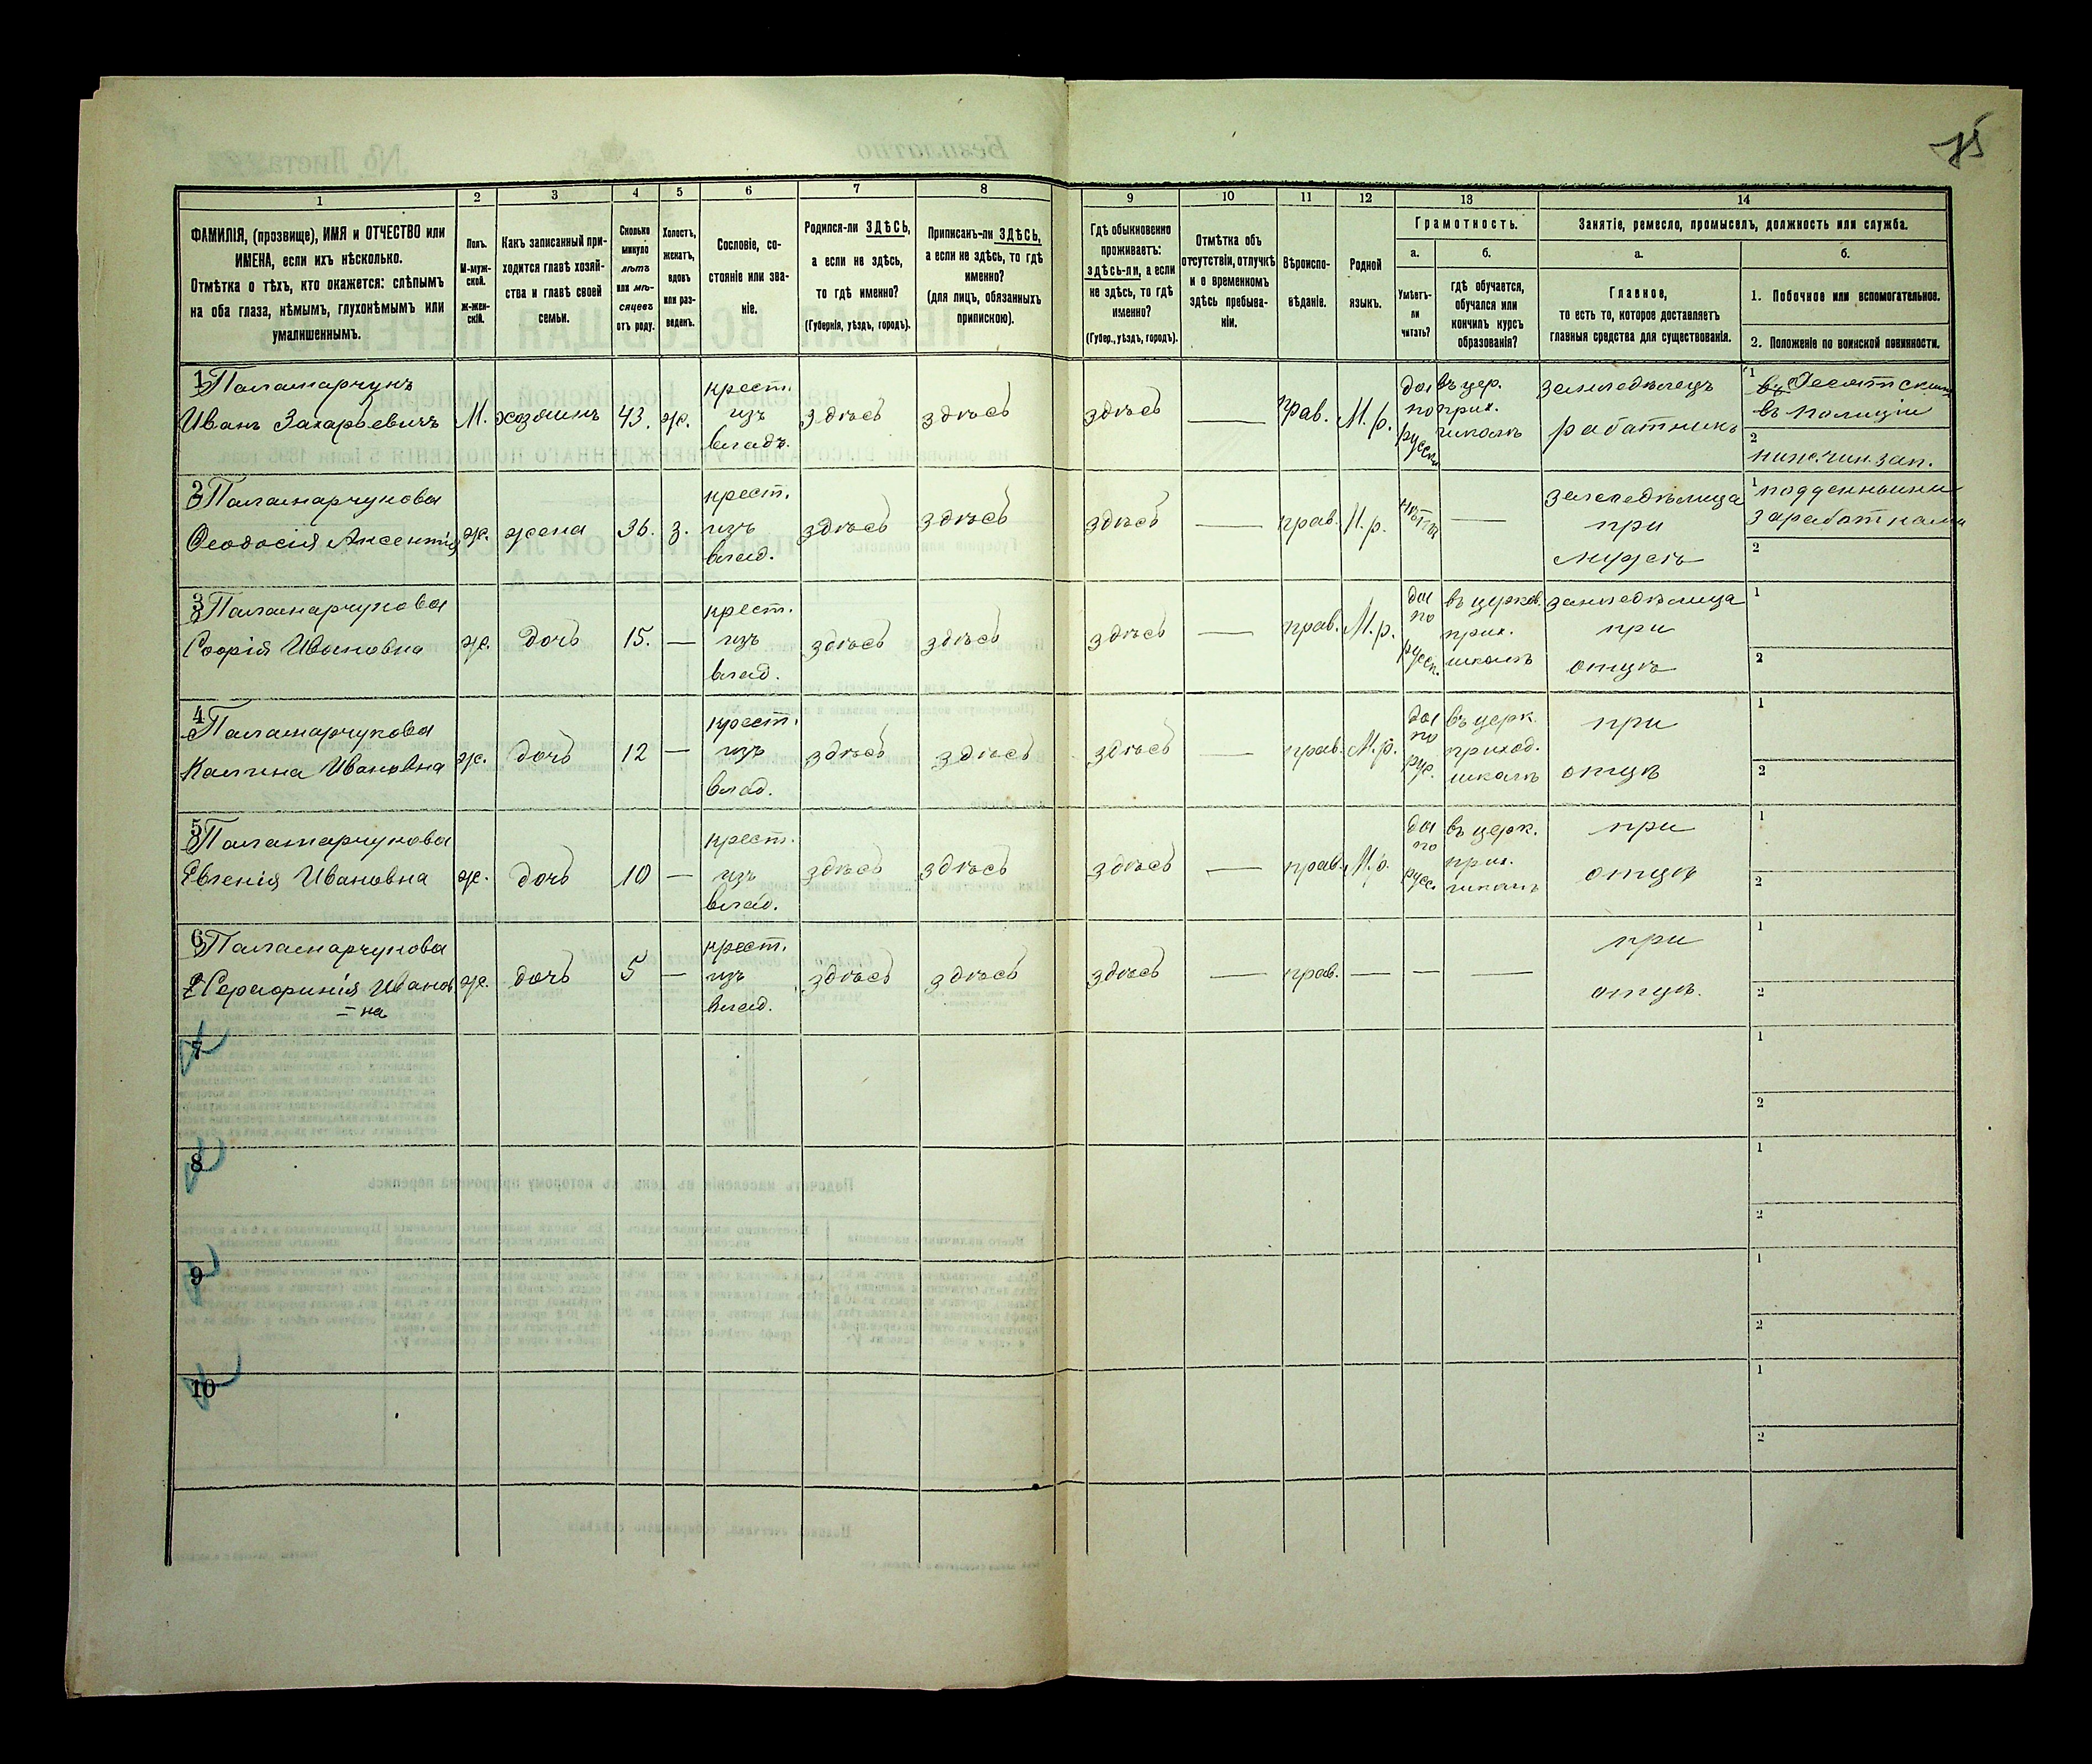 75
1 2 3 4 5 6 7 8 9 10 11 12 13 14
ФАМИЛІЯ, (прозвище), ИМЯ и ОТЧЕСТВО или
ИМЕНА, если ихъ нѣсколько.
Отмѣтка о тѣхъ, кто окажется: слѣпымъ
на оба глаза, нѣмымъ, глухонѣмымъ или
умалишеннымъ.
Полъ.
М-муж-
ской.
Ж-жен-
скій.
Какъ записанный при-
ходится главѣ хозяй-
ства и главѣ своей
семьи.
Сколько
минуло
лѣтъ
или мѣ-
сяцевъ
отъ роду.
Холостъ,
женатъ,
вдовъ
или раз-
веденъ.
Сословіе, со-
стояніе или зва-
ніе.
Родился-ли ЗДѢСЬ,
а если не здѣсь,
то гдѣ именно?
(Губернія, уѣздъ, городъ).
Приписанъ-ли ЗДѢСЬ,
а если не здѣсь, то гдѣ
именно?
(для лицъ, обязанныхъ
припискою).
Гдѣ обыкновенно
проживаетъ:
здѣсь-ли, а если
не здѣсь, то гдѣ
именно?
(Губер., уѣздъ, городъ).
Отмѣтка объ
отсутствіи, отлучкѣ
и о временномъ
здѣсь пребыва-
ніи.
Вѣроиспо-
вѣданіе.
Родной
языкъ.
Грамотность.
а.
Умѣетъ-
ли
читать?
б.
гдѣ обучается,
обучался или
кончилъ курсъ
образованія?
Занятіе, ремесло, промыселъ, должность или служба.
а.
Главное,
то есть то, которое доставляетъ
главныя средства для существованія.
б.
1. Побочное или вспомогательное.
2. Положеніе по воинской повинности.
1 Паламарчукъ
Иванъ Захарьевичъ
М.
хозяинъ
43.
ж.
крест.
изъ
владѣ.
здѣсь
здѣсь
здѣсь
—
прав.
М. р.
да
по
русски
въ цер.
прих.
школѣ
земледѣлецъ
работникъ
1
въ полиціи
2
ниж. чин. зап.
2 Паламарчукова
Ѳеодосія Аксентія
ж.
жена
36.
з.
крест.
изъ
влад.
здѣсь
здѣсь
здѣсь
—
прав.
М. р.
нѣтъ
—
земледѣлица
при
мужѣ
1 подденными
заработками
2
3 Паламарчукова
Софія Ивановна
ж.
дочь
15.
—
крест.
изъ
влад.
здѣсь
здѣсь
здѣсь
—
прав.
М. р.
да
по
русск.
въ церков.
прих.
школѣ
земледѣлица
при
отцѣ
1
2
4 Паламарчукова
Калина Ивановна
ж.
дочь
12
—
крест.
изъ
влад.
здѣсь
здѣсь
здѣсь
—
прав.
М. р.
да
по
рус.
въ церк.
приход.
школѣ
при
отцѣ
1
2
5 Паламарчукова
Евгенія Ивановна
ж.
дочь
10
—
крест.
изъ
влад.
здѣсь
здѣсь
здѣсь
—
прав.
М. р.
да
по
русс.
въ церк.
прих.
школѣ
при
отцѣ
1
2
6 Паламарчукова
Иванов
=на
ж.
дочь
5
—
крест.
изъ
влад.
здѣсь
здѣсь
здѣсь
—
прав.
—
—
—
при
отцѣ.
1
2
7
1
2
8
1
2
9
1
2
10
1
2